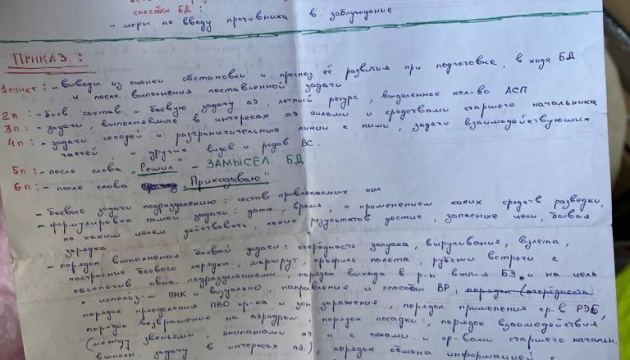 способы БД:
- меры по вводу противника в заблуждение
ПРИКАЗ:
1 пункт: - выводы из оценки обстановки и прогноз её развития при подготовке, в ходе БД
и после выполнения поставленной задачи
2п: - боев. состав и боевую задачу аэ, летный ресурс, выделенное кол-во АСП
3п: - задачи, выполняемые в интересах аэ силами и средствами старшего начальника
4п: - задачи соседей и разграничительные линии с ними, задачи взаимодействующих
частей и других видов и родов ВС.
5п: - после слова "Решил" - ЗАМЫСЕЛ БД
6п: - после слова "Приказываю"
- боевые задачи подразделению: состав привлекаемых сил
- формулировка самой задачи: дата, время, с применением каких средств разведки,
по каким целям действовать, каких результатов достичь, запасные цели, боевая
зарядка
- порядок выполнения боевой задачи: очередность запуска, выруливания, взлета,
построение боевого порядка, маршрут, профиль полета, рубежи встречи с
обеспечив. авиа подразделениями, порядок выхода в р-н вып-я БЗ и на цель
с использ-м ПНК и визуально, направление и способы ВР,
порядок преодоления ПВО пр-ка и зон заражения, порядок применения ср-в РЭБ,
порядок возвращения на аэродром, порядок посадки, порядок взаимодействия
(между звеньями, экипажами аэ и с силами и ср-вами старшего начальн.
выполн. задачу в интересах аэ), порядок обмена информацией с